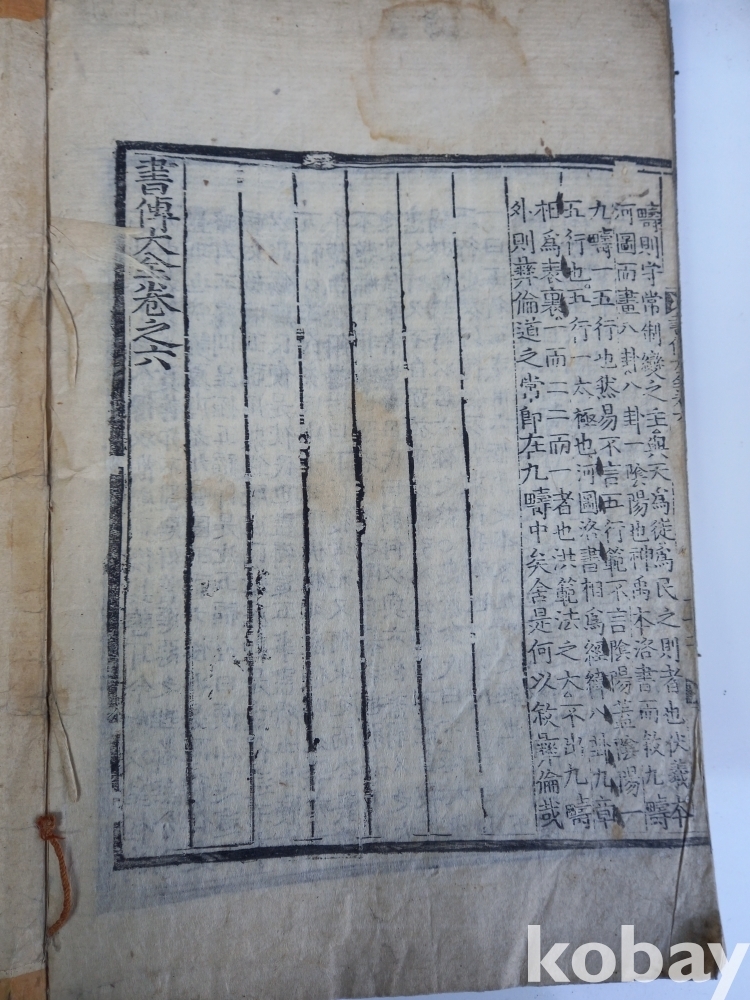 疇則守常制變之主與天爲徒爲民之則者也伏羲本
河圖而畫八卦八卦一陰陽也神禹本洛書而敍九疇
九疇一五行也然易不言五行範不言陰陽蓋陰陽一
五行也五行一太極也河圖洛書相爲經緯八卦九章
相爲表裏一而二二而一者也洪範法之大不出九疇
外則彛倫道之常即在九疇中矣舍是何以敍彛倫哉
書傳大全卷之六
kobay